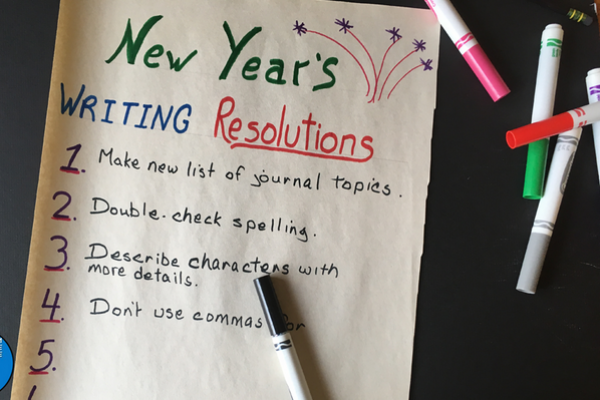 New Year's
WRITING Resolutions
1. Make new list of journal topics.
2. Double-check spelling.
3. Describe characters with
more details.
4. Don't use commas for
5.